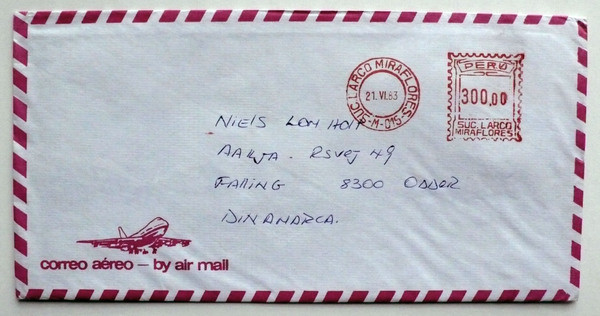 SUC. LARCO MIRAFLORES
21.VI.83
-M-015-
PERÚ
300,00
SUC. LARCO
MIRAFLORES
NIELS LOMHOLT
RSVEJ 49
FALING 8300 ODDER
DINAMARCA.
correo aéreo – by air mail